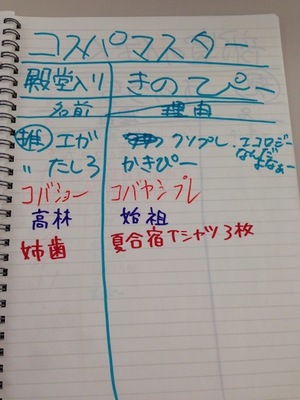 コスパマスター
殿堂入り きのてぴー
名前 理由
推 エガ クソプレ.エコロジー なんだ よなぁー
〃 たしろ かきぴー
コバショー コバヤシプレ
高林 始祖
姉歯 夏合宿Tシャツ3枚